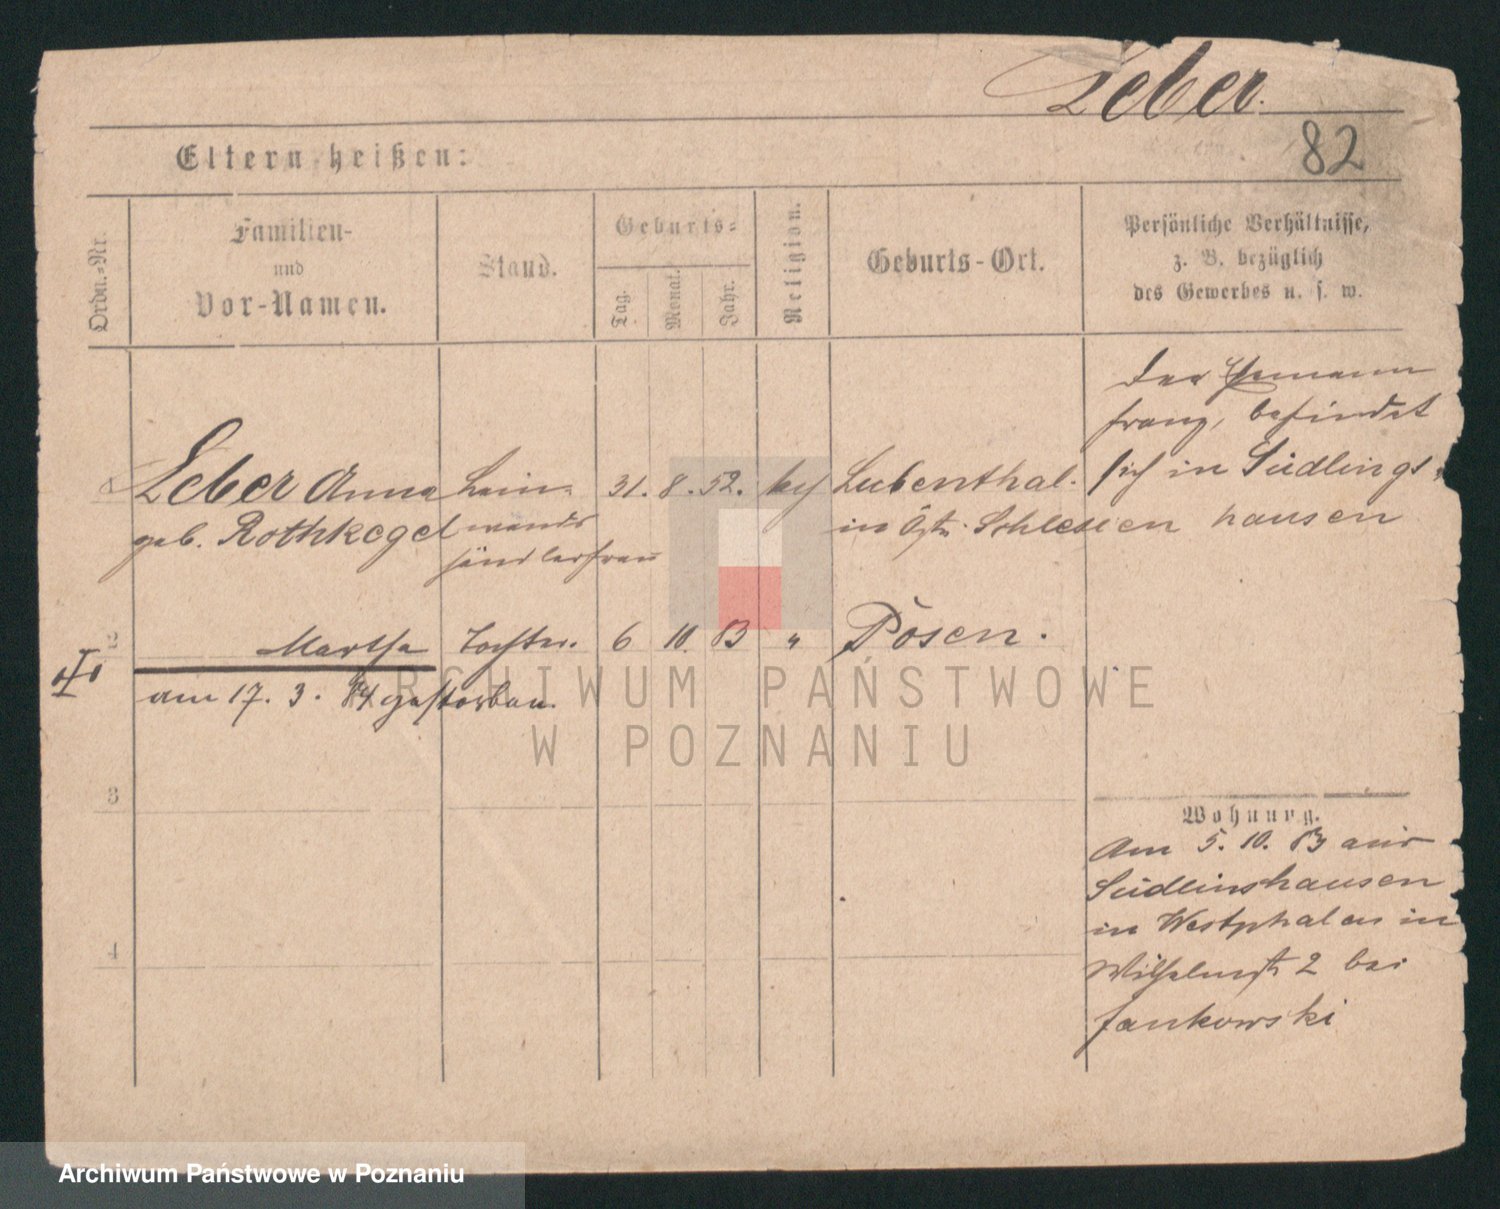 Leber.
82
Eltern heißen:
Ordn.=Nr.
Familien-
und
Vor-Namen.
Stand.
Geburts=
Tag.
Monat.
Jahr.
Religion.
Geburts-Ort.
Persönliche Verhältnisse,
z. B. bezüglich
des Gewerbes u. s. w.
Der Ehemann
Franz, befindet
sich in Südlings,
hausen
1 Leber Anna Lein- 31. 8. 52. Lubenthal.
geb. Rothkegel wands in Östr. Schlesien
händlersfrau
2 Martha Tochter. 6 10. 83 " Posen.
am 17. 3. 84 gestorben.
3
4
Wohnung.
Am 5. 10. 83 aus
Südlinshausen
in Westphalen in
Wilhelmstr 2 bei
Jankowski
ARCHIWUM PAŃSTWOWE
W POZNANIU
Archiwum Państwowe w Poznaniu